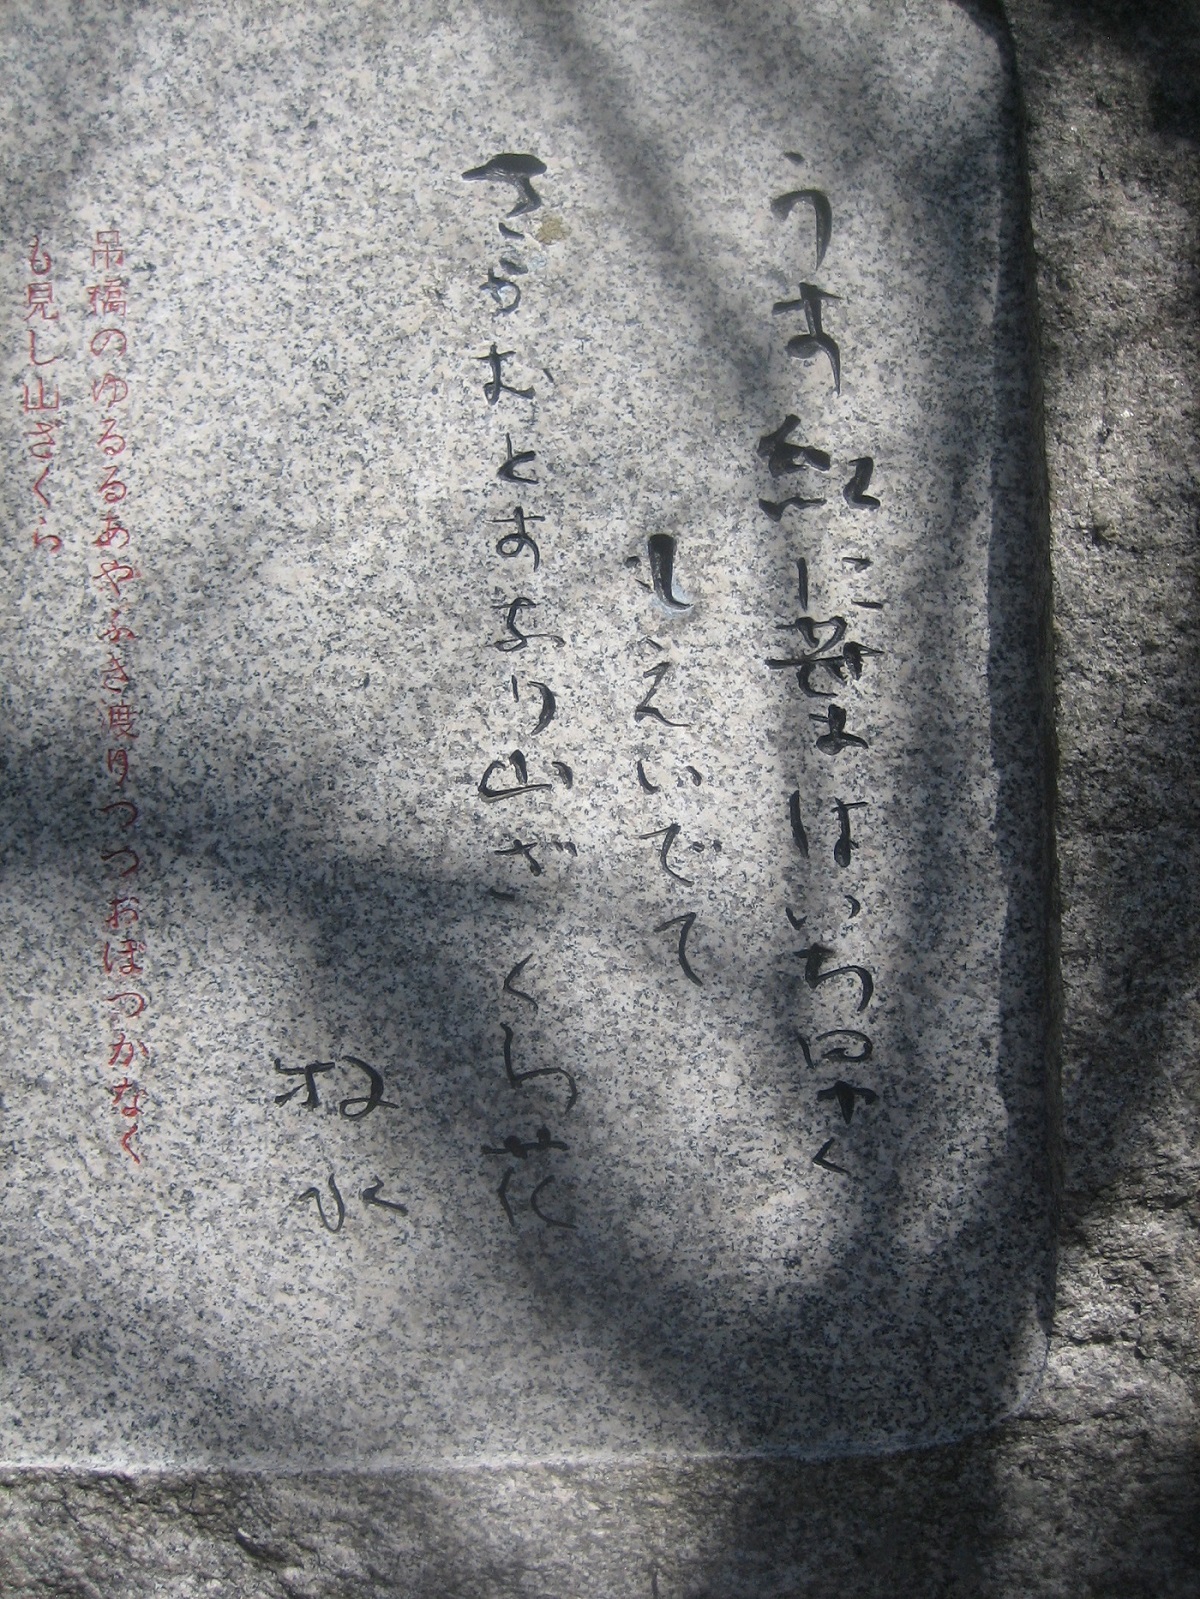 うす紅に葉はいち早く
もえいでて
さかむとすなり山ざくら花
牧水
吊橋のゆるるあやふき渡りつつおぼつかなく
も見し山ざくら